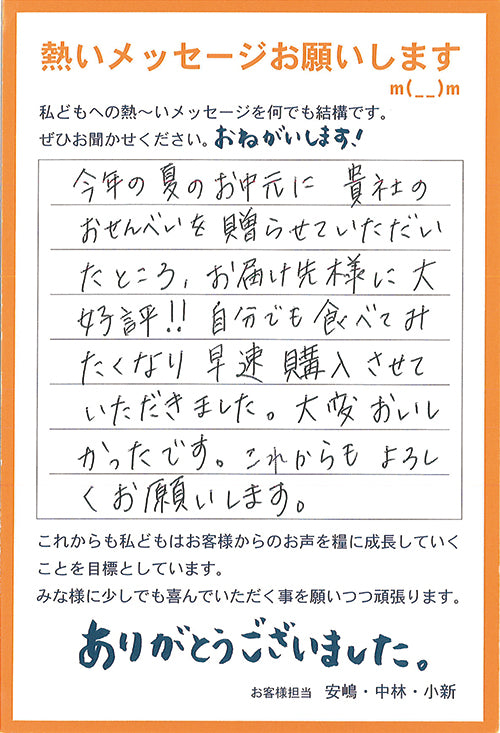 熱いメッセージお願いします
m(__)m
私どもへの熱～いメッセージを何でも結構です。
ぜひお聞かせください。おねがいします!
今年の夏のお中元に 貴社の
おせんべいを贈らせていただい
たところ、お届け先様に大
好評!! 自分でも食べてみ
たくなり 早速 購入させて
いただきました。大変おいし
かったです。これからも よろし
くお願いします。
これからも私どもはお客様からのお声を糧に成長していく
ことを目標としています。
みな様に少しでも喜んでいただく事を願いつつ頑張ります。
ありがとうございました。
お客様担当 安嶋・中林・小新